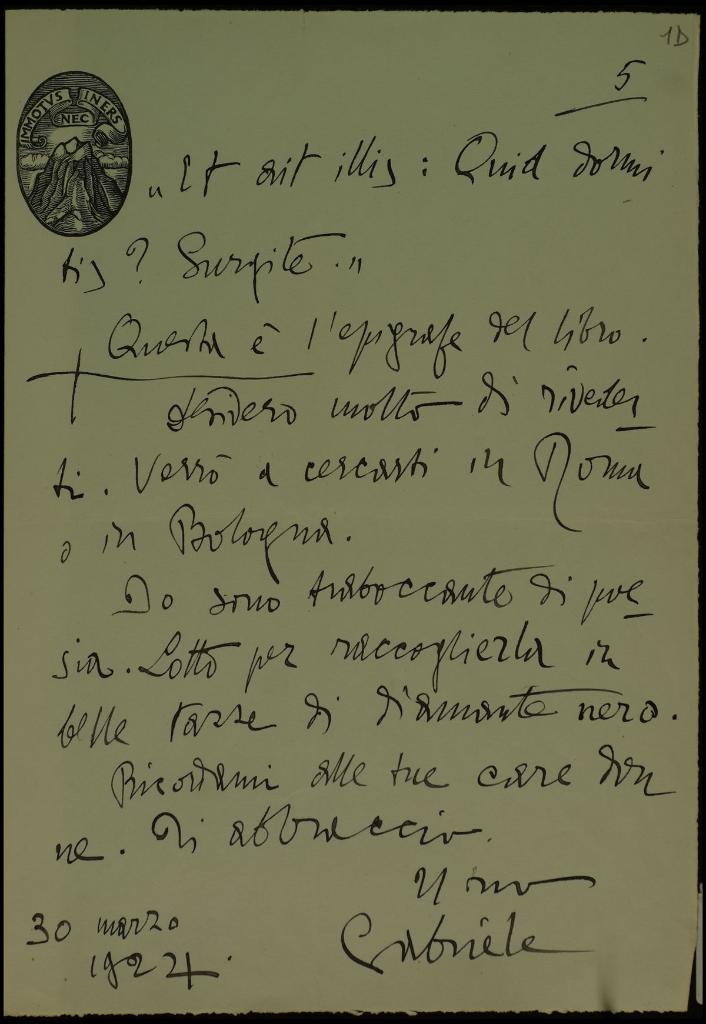 1D
5
IMMOTVS NEC INERS
„Et ait illis: Quid dormi
tis? Surgite."
Questa è l'epigrafe del libro.
desidero molto di riveder
ti. Verrò a cercarti in Roma
o in Bologna.
Io sono traboccante di poe
sia. Lotto per raccoglierla in
belle tazze di diamante nero.
Ricordami alle tue care don
ne. Ti abbraccio.
Il tuo
Gabriele
30 marzo
1924.